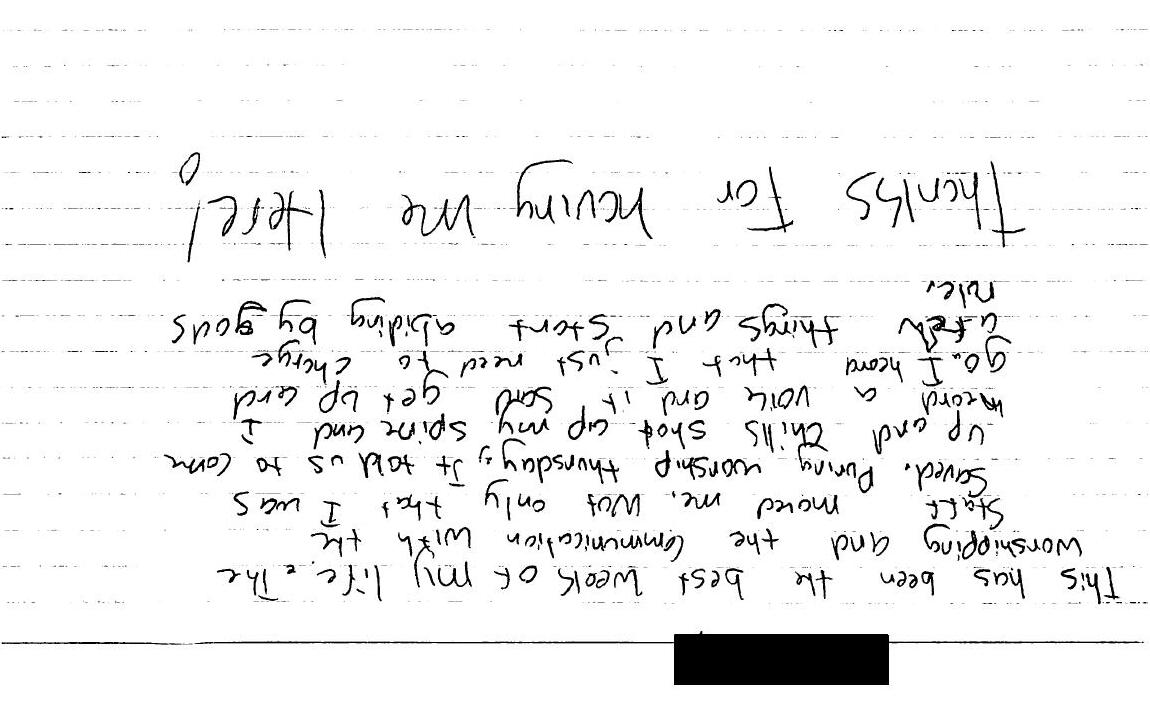 This has been the best week of my life. The
worshipping and the communication with the
staff moved me. Not only that I was
saved. During worship thursday, It told us to come
up and chills shot up my spine and I
heard a voice and it said get up and
go. I heard that I just need to change
a few things and start abiding by gods
rule.
Thanks for having me Here!